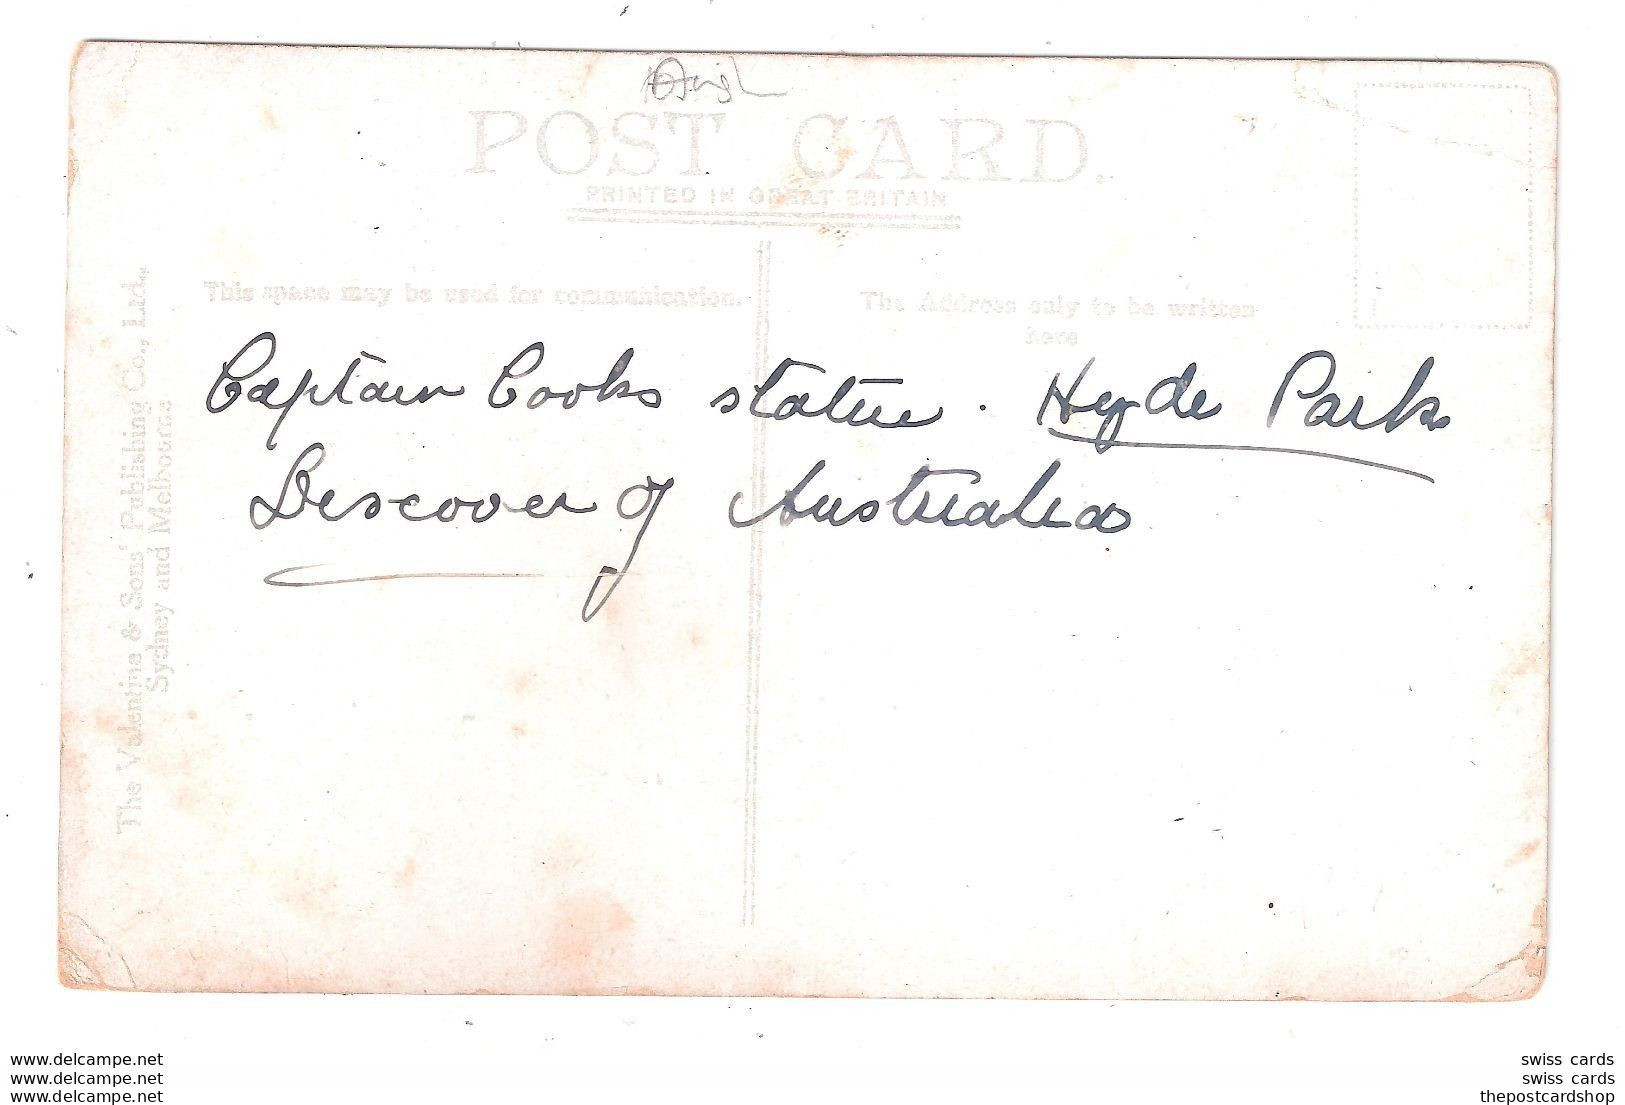 POST CARD.
PRINTED IN GREAT BRITAIN
This space may be used for communication.
The Address only to be written
here
Captain Cooks statue. Hyde Park
Discover of Australia
The Valentine & Sons' Publishing Co., Ltd.,
Sydney and Melbourne
www.delcampe.net
www.delcampe.net
www.delcampe.net
swiss cards
swiss cards
thepostcardshop